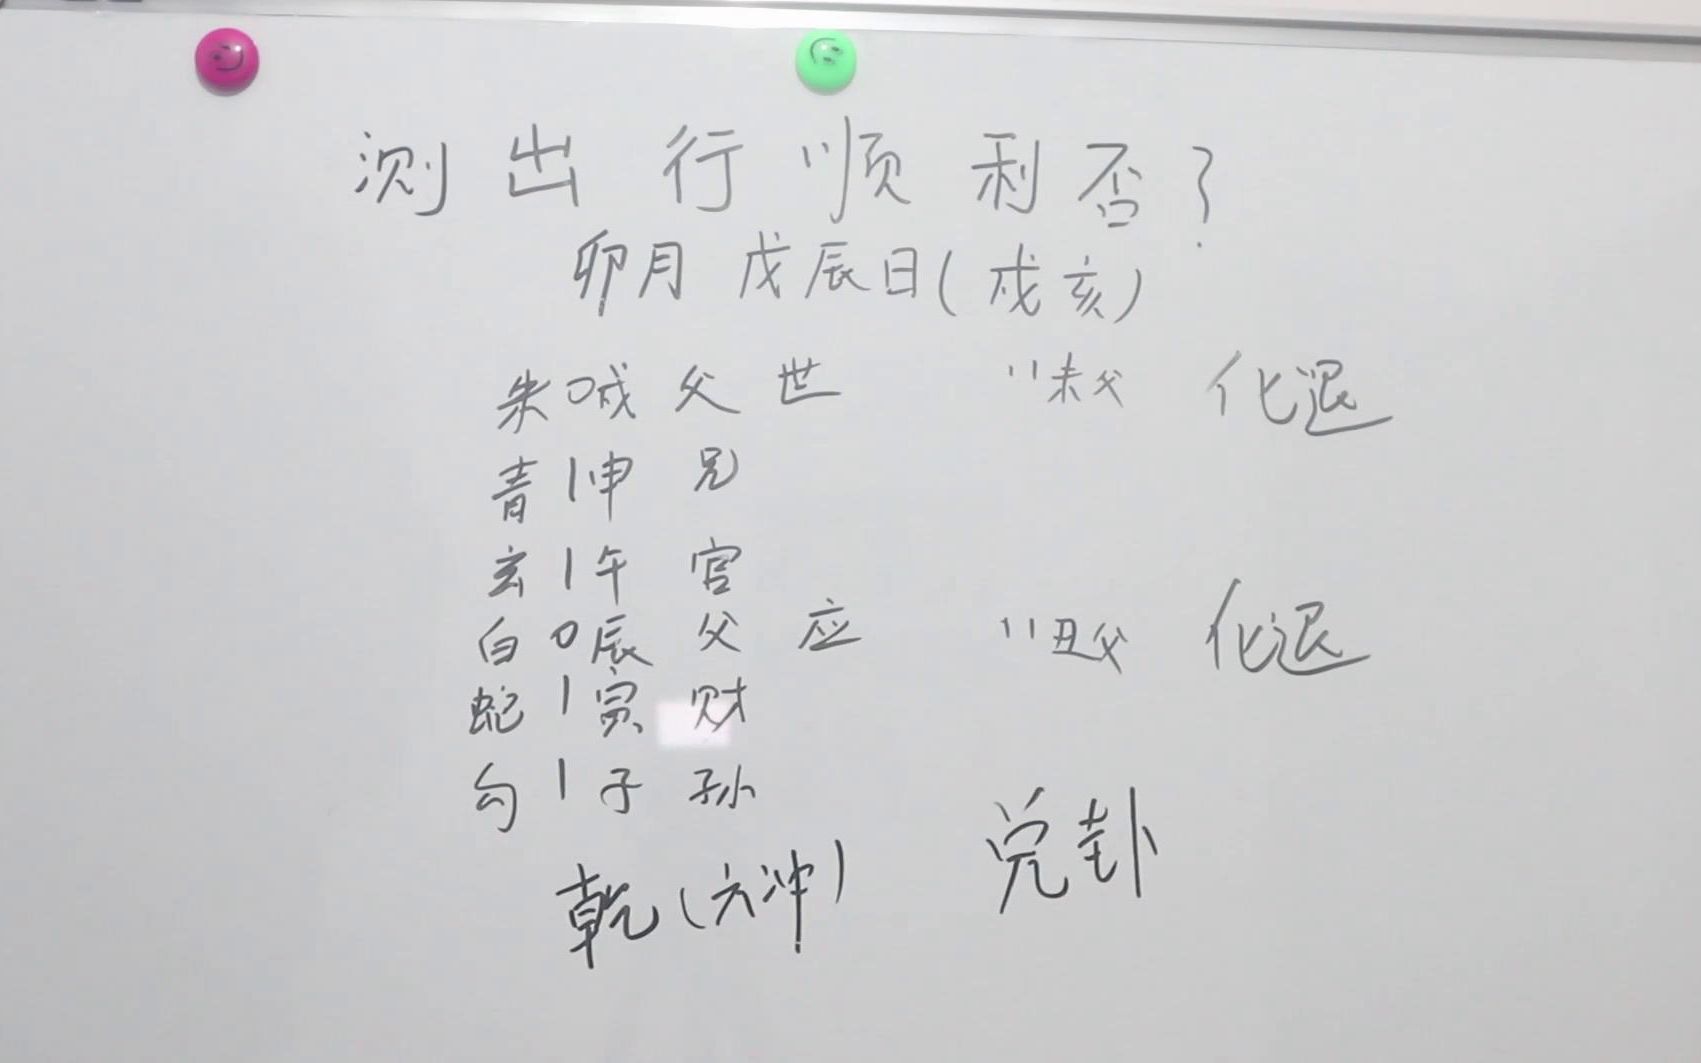 测出行顺利否?
卯月 戊辰日(戌亥)
朱 O戌 父 世 〃未父 化退
青 1申 兄
玄 1午 官
白 0辰 父 应 〃丑父 化退
蛇 1寅 财
勾 1子 孙
乾(六冲) 兑卦